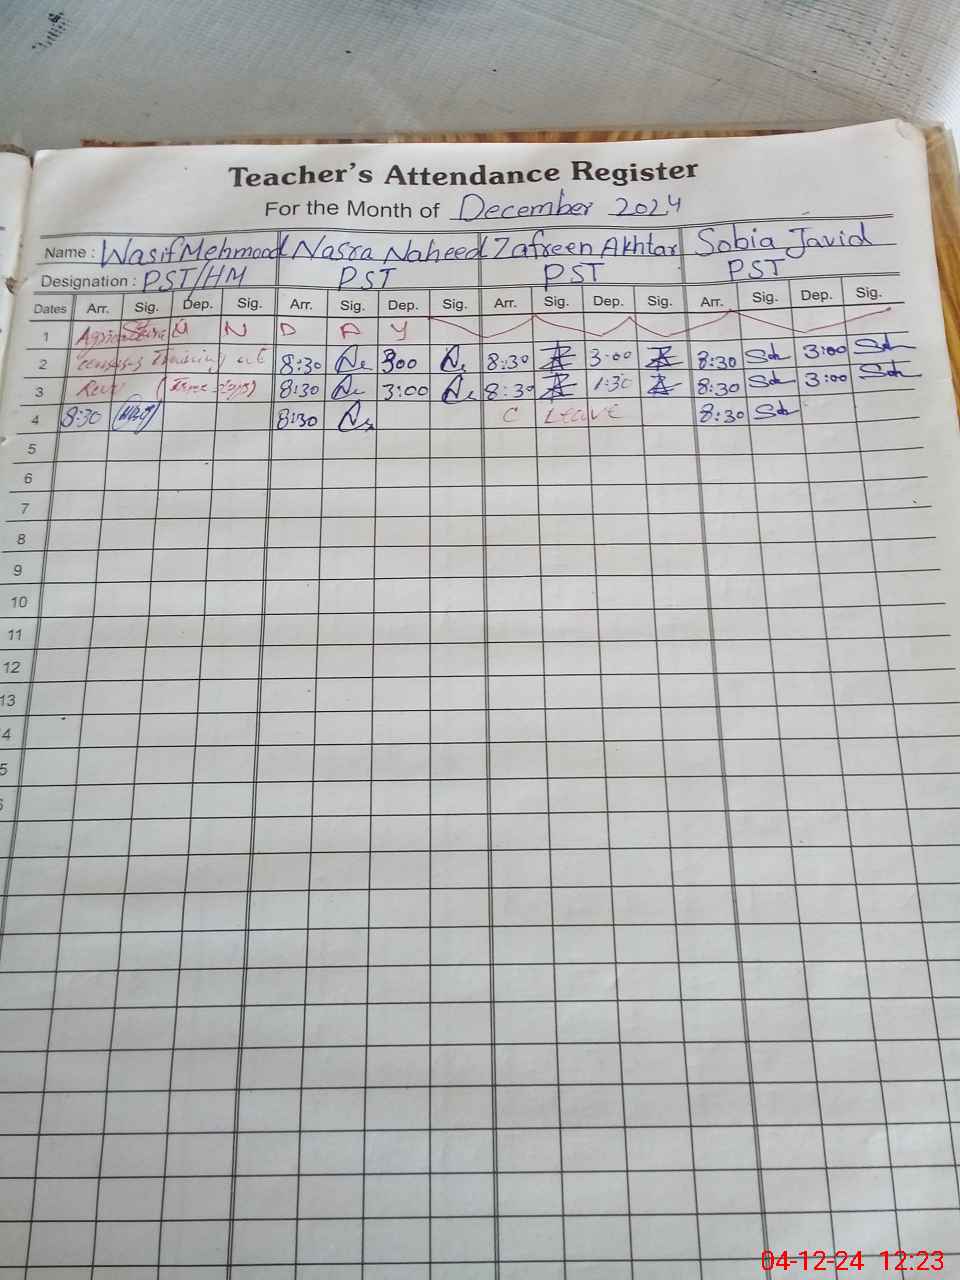 Teacher's Attendance Register
For the Month of December 2024
Name : Wasif Mehmood Nasra Naheed Zafreen Akhtar Sobia Javid
Designation : PST/HM PST PST PST
Dates Arr. Sig. Dep. Sig. Arr. Sig. Dep. Sig. Arr. Sig. Dep. Sig. Arr. Sig. Dep. Sig.
1 S U N D A Y
2 Census Training at 8:30 300 8:30 3:00 8:30 3:00
3 8:30 3:00 8:30 1:30 8:30 3:00
4 8:30 8:30 C Leave 8:30
5
6
7
8
9
10
11
12
13
4
5
04-12-24 12:23